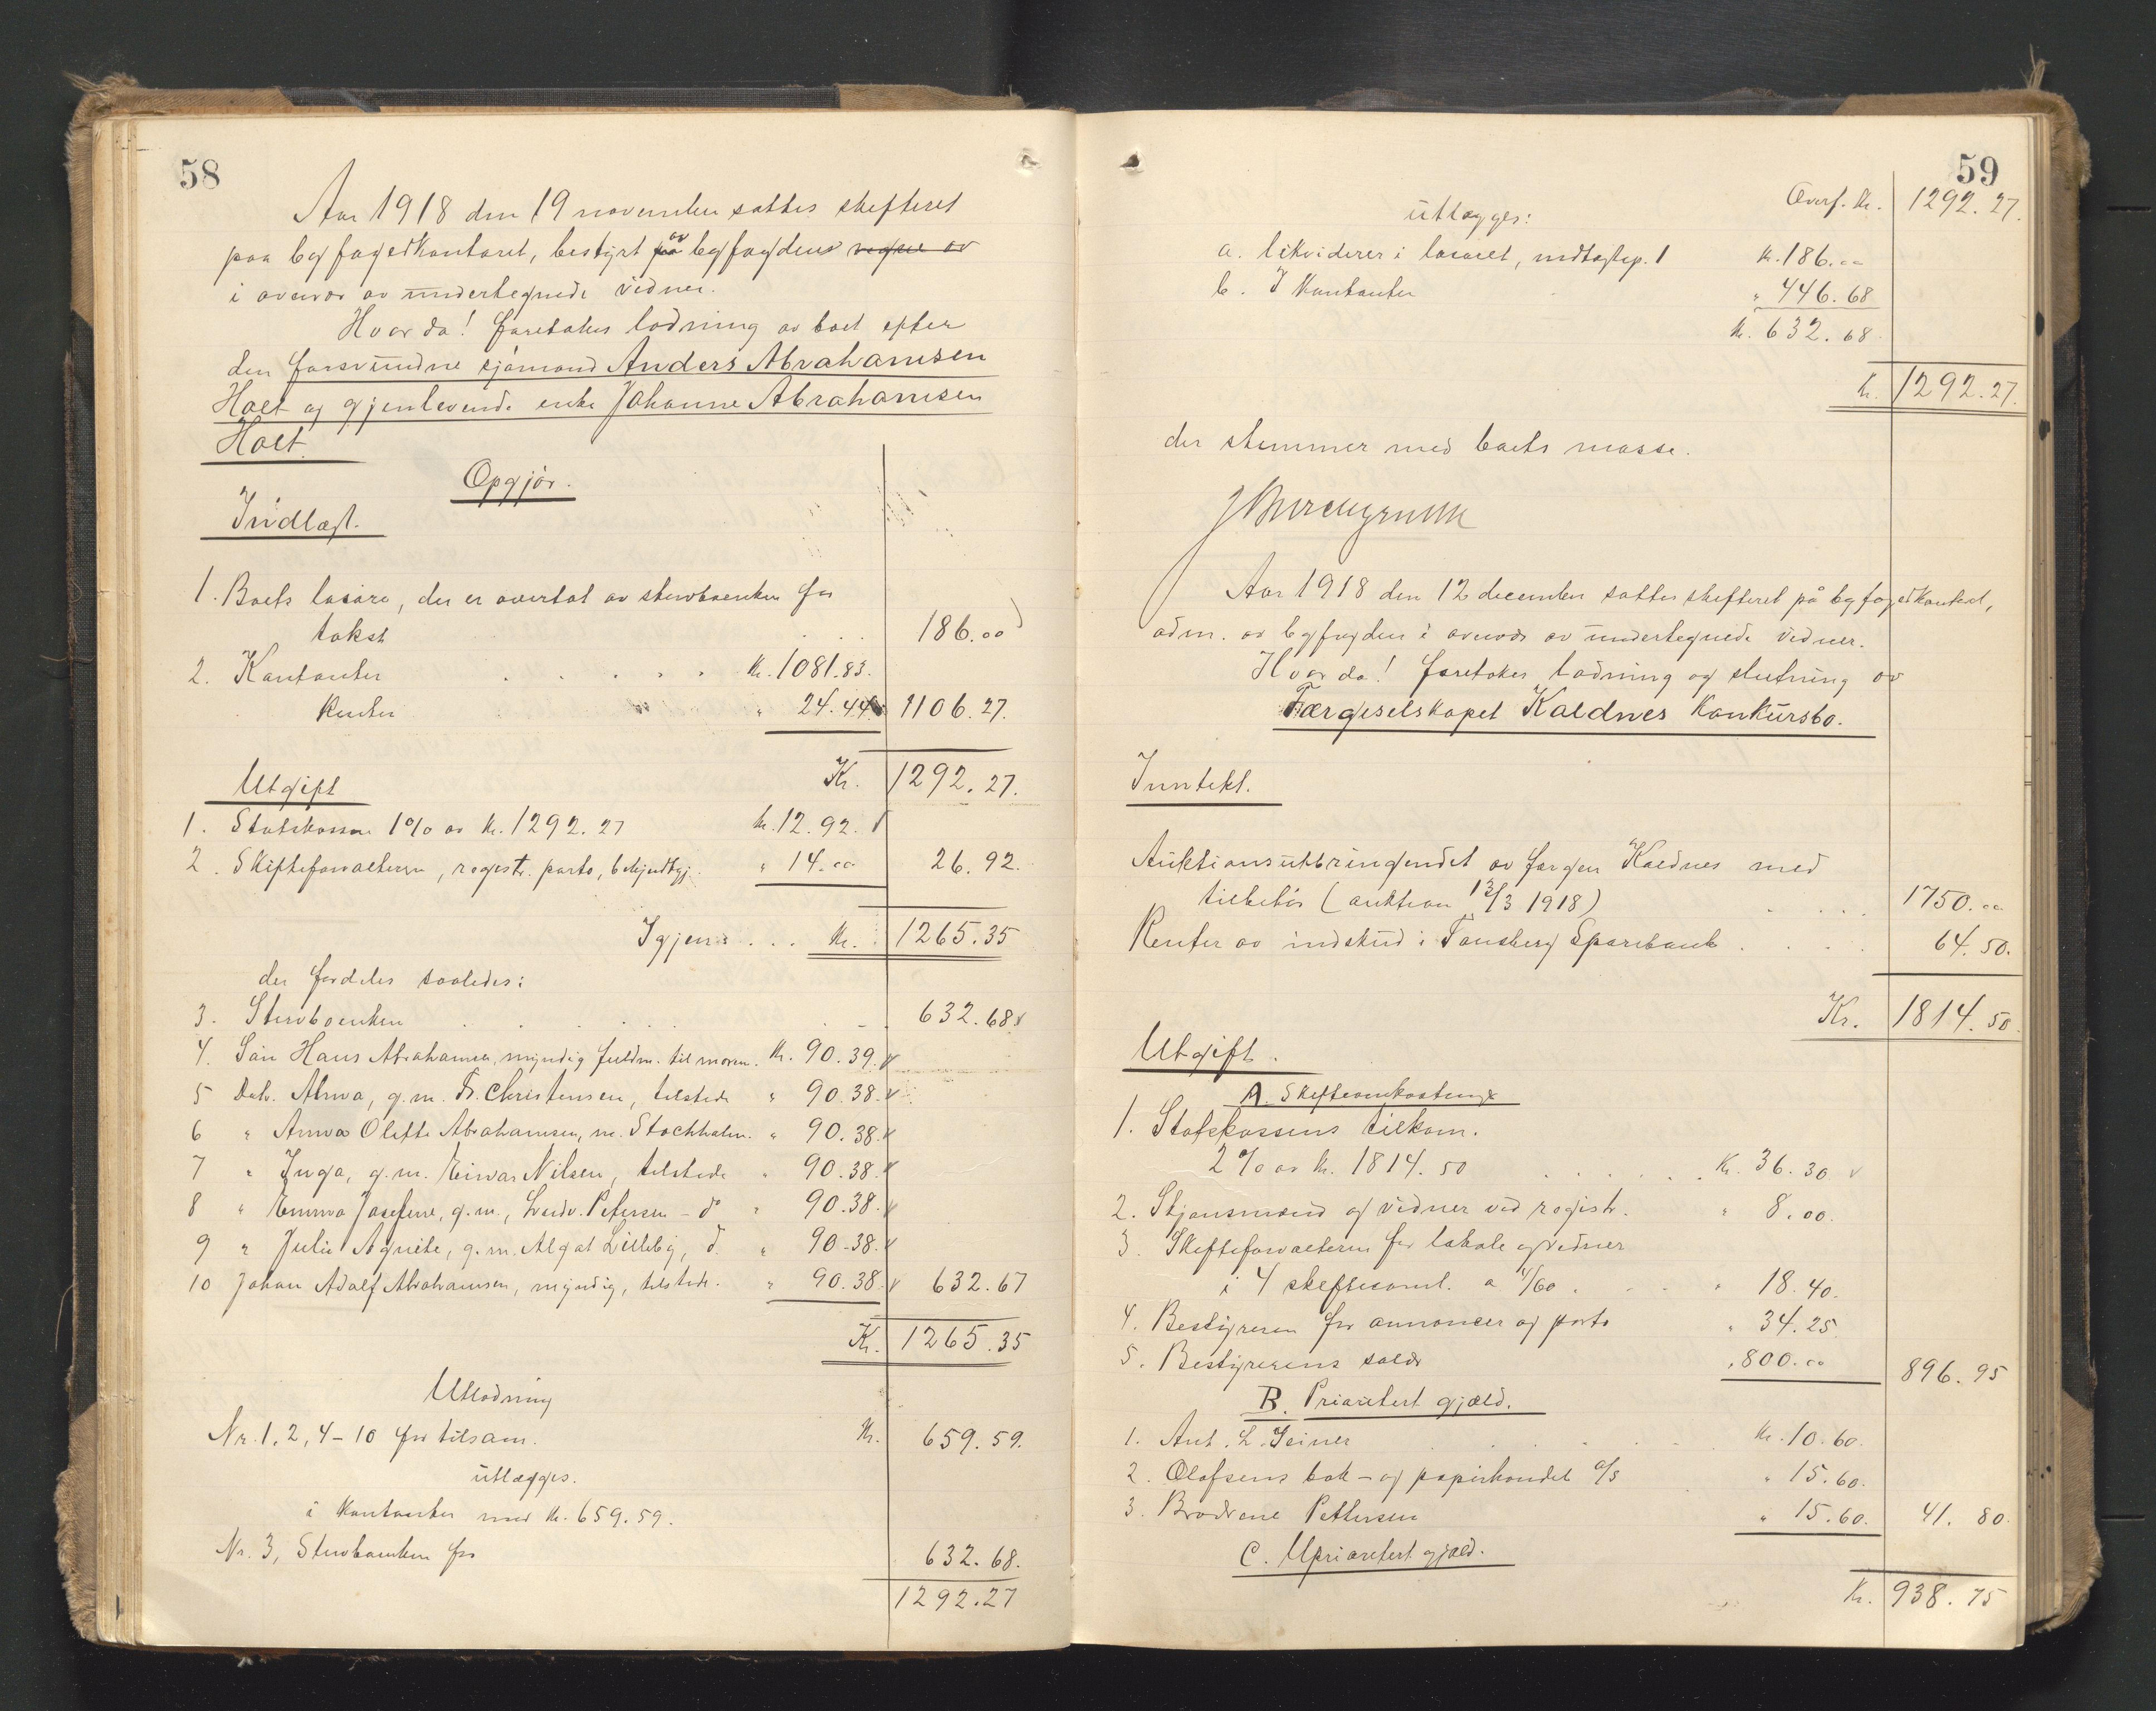 58
Aar 1918 den 19 november sattes skifteret
paa byfogedkontoret, bestyrt av byfogden vegne av
i overvær av undertegnede vidner.
Hvorda! foretokes lodning av boet efter
den forsvundne sjömand Anders Abrahamsen
Holt og gjenlevende enke Johanne Abrahamsen
Holt.
Opgjör.
Indtægt.
1. Boets løsöre, der er overtat av stervboenken for
takst . . . 186.00
2. Kontanter . . . . . Kr. 1081.83.
Renter " 24.44 1106.27.
Kr. 1292.27.
Utgift
1. Statskassen 1% av Kr. 1292.27 Kr. 12.92.
2. Skifteforvalteren, registr. porto, bekjendtgj. " 14.00 26.92.
Igjen . . . Kr. 1265.35
der fordeles saaledes:
3. Stervboenken . . . . . 632.68
4. Sön Hans Abrahamsen, myndig fuldm. til moren. Kr. 90.39.
5 Datr. Alma, g.m. Fr. Christensen, tilstede " 90.38.
6 " Anna Olefte Abrahamsen, m. Stockholm. " 90.38.
7 " Inga, g.m. Einar Nilsen, tilstede " 90.38.
8 " Emma Josefine, g.m., Ludv. Petersen - do " 90.38.
9 " Julie Agnete, g.m. Algot Lilleby, d. " 90.38.
10 Johan Adolf Abrahamsen, myndig, tilstede. " 90.38. 632.67
Kr. 1265.35
Utlodning
Nr. 1, 2, 4-10 for tilsam. Kr. 659.59.
utlægges.
i kontanter med Kr. 659.59.
Nr. 3, Stervboenken for 632.68.
1292.27
59
Overf. Kr. 1292.27.
utlægges:
a. likviderer i løsöret, indtægtsp. 1 Kr. 186.00
b. I kontanter " 446.68
Kr. 632.68.
Kr. 1292.27.
der stemmer med boets masse.
Aar 1918 den 12 december sattes skifteret på byfogedkontoret,
adm. av byfogden i overvær av undertegnede vidner.
Hvorda! foretokes lodning og slutning av
Færgeselskapet Kaldnes konkursbo.
Inntekt.
Auktionsutbringendet av færgen Kaldnes med
tilbehör (auktion 13/3 1918) . . . . 1750.00
Renter av indskud i Tønsberg Sparebank . . . . 64.50.
Kr. 1814.50.
Utgift.
A. Skifteomkostning
1. Statskassens tilkom.
2% av Kr. 1814.50 . . . . . Kr. 36.30
2. Skjönsmænd og vidner ved registr. " 8.00.
3. Skifteforvalteren for lokale og vidner
i 4 skiftesaml. a 4/60 . . . " 18.40.
4. Bestyreren for annoncer og porto " 34.25.
5. Bestyrerens salær " 800.00 896.95
B. Prioritert gjæld.
1. Ant. L. . . . . . Kr. 10.60.
2. Olafsens bok- og papirhandel a/s " 15.60.
3. Brødrene Pettersen " 15.60. 41.80
C. Uprioritert gjæld.
Kr. 938.75